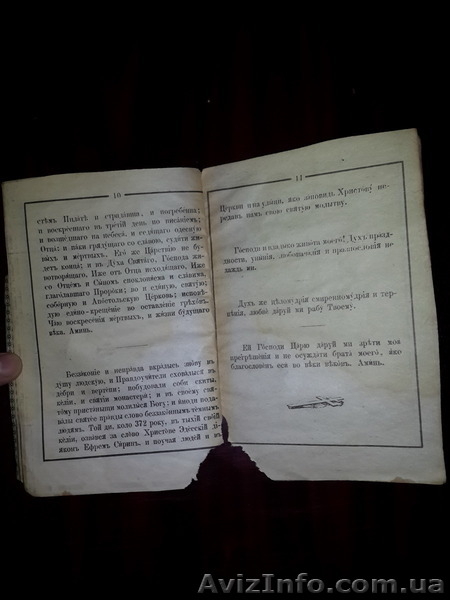 10
стѣмъ Пилатѣ и страдавша, и погребенна;
и воскресшаго въ третій день по писаніемъ;
и возшедшаго на небеса, и сѣдящаго одесную
Отца; и паки грядущаго со славою, судити жи-
вымъ и мертвымъ, Его же Царствію не бу-
детъ конца; и въ Духа Святаго, Господа жи-
вотворящаго, Иже отъ Отца исходящаго, Иже
со Отцемъ и Сыномъ спокланяема и славима,
глаголавшаго Пророки; во едину, святую,
соборную и Апостольскую Церковь; исповѣ-
дую едино-крещеніе во оставленіе грѣховъ.
Чаю воскресенія мертвыхъ, и жизни будущаго
вѣка. Аминь.
Беззаконіе и неправда вкрались знову въ
душу людскую, и Правдоучители сховались въ
дебри и вертепи; побудовали соби скиты,
келіи, и святіи монастыри; и въ своему свя-
тому пристанищи молились Богу; и иноди пода-
валы святее правды слово беззаконнымъ-темнымъ
людямъ. Той ди, коло 372 року, въ тыхій своїй
келіи, озвився за слово Христове Эдесскій ді-
яконъ Ефремъ Сиринъ, и поучая людей и въ
11
Церкви и на улици, яко заповидь Христову пе-
редавъ намъ свою святую молытву.
Господи и владыко живота моего! Духъ празд-
ности, унынія, любоначалія и празнословія не
даждь ми.
Духъ же цѣломудрія смиренномудрія и тер-
пѣнія, любве даруй ми рабу Твоему.
Ей Господи Царю даруй ми зрѣти моя
прегрѣшенія и не осуждати брата моего, яко
благословенъ еси во вѣки вѣковъ. Аминь.
AvizInfo.com.ua